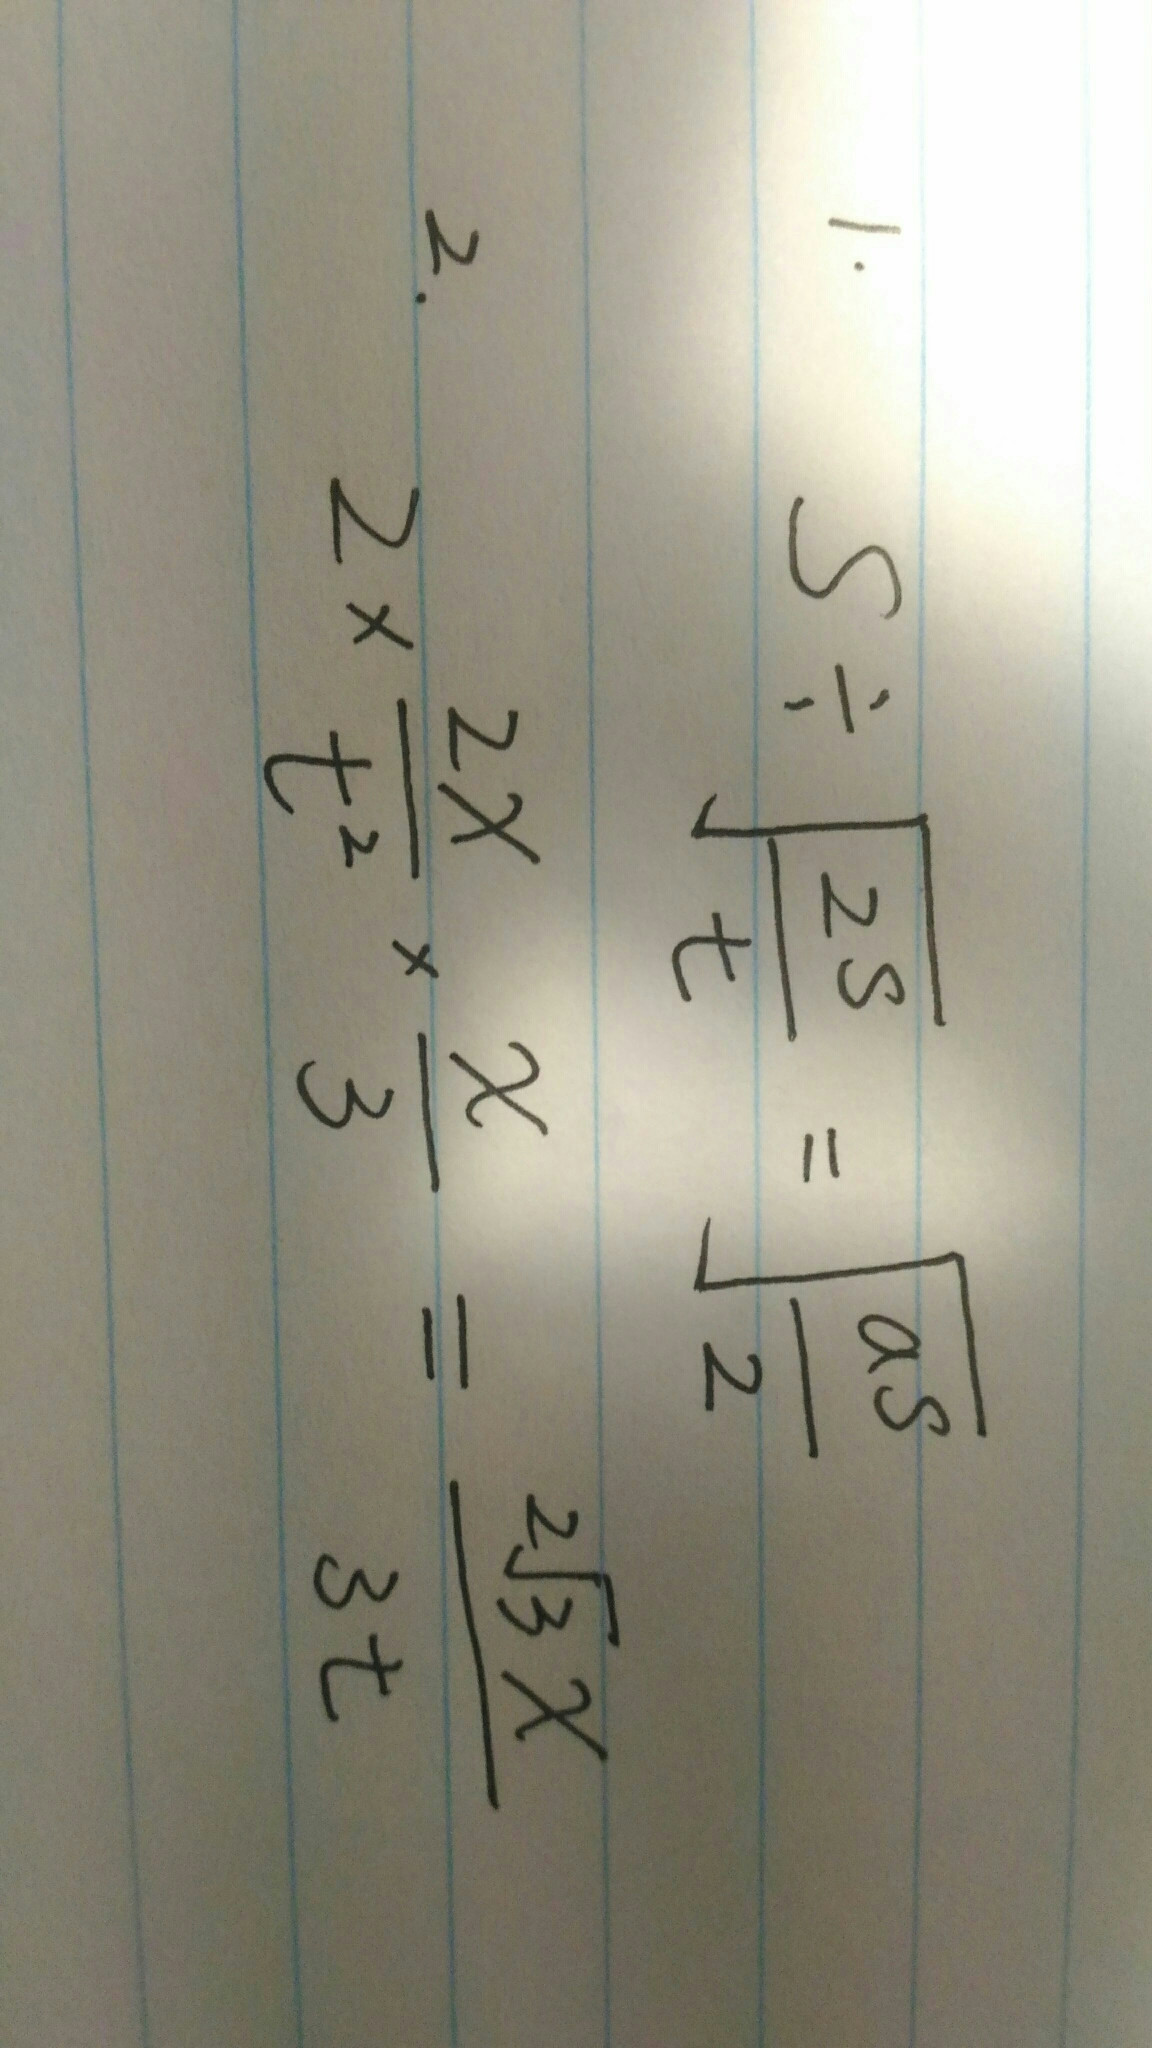 1. S ÷ √(2S/t) = √(as/2)
2. 2 × 2x/t² × x/3 = 2√3x/3t